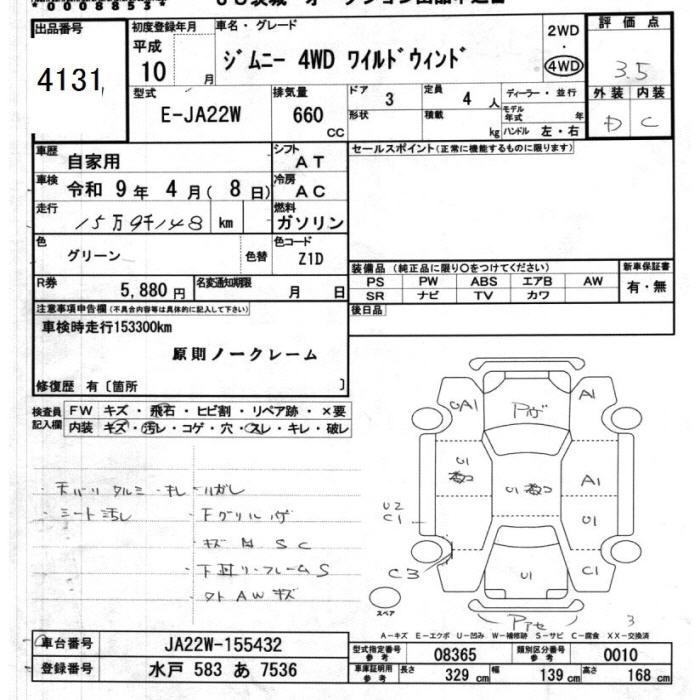 *00088534*
出品番号 4131
初度登録年月 平成 10 月
車名・グレード ジムニー 4WD ワイルドウィンド
2WD ・ 4WD
評価点 3.5
外装 内装
D C
型式 E-JA22W
排気量 660 CC
ドア 3 形状
定員 4 人 積載 kg
ディーラー・並行
モデル年式 年
ハンドル 左・右
車歴 自家用
シフト AT
セールスポイント(正常に機能するものに限ります)
車検 令和 9 年 4 月( 8 日)
冷房 AC
走行 15万9千148 km
燃料 ガソリン
色 グリーン 色替
色コード Z1D
装備品(純正品に限り〇をつけてください)
PS PW ABS エアB AW
SR ナビ TV カワ
新車保証書 有・無
R券 5,880 円
名変通知期限 月 日
後日品
注意事項申告欄(不具合内容等は具体的に記入して下さい)
車検時走行153300km
原則ノークレーム
修復歴 有〔箇所 〕
検査員記入欄
FW キズ・飛石・ヒビ割・リペア跡・×要
内装 キズ・汚レ・コゲ・穴・スレ・キレ・破レ
・天バリ タルミ・キレ・ハガレ
・シート汚レ
・下廻リ・フレームS
・外AWキズ
A1
A1
U1
U1
A1
U1
U2
C1
C3
U1
C1
スペア
3
A-キズ E-エクボ U-凹み W-補修跡 S-サビ C-腐食 XX-交換済
車台番号 JA22W-155432
登録番号 水戸 583 あ 7536
型式指定番号 参考 08365
類別区分番号 参考 0010
車庫証明用 参考 長さ 329 cm 幅 139 cm 高さ 168 cm